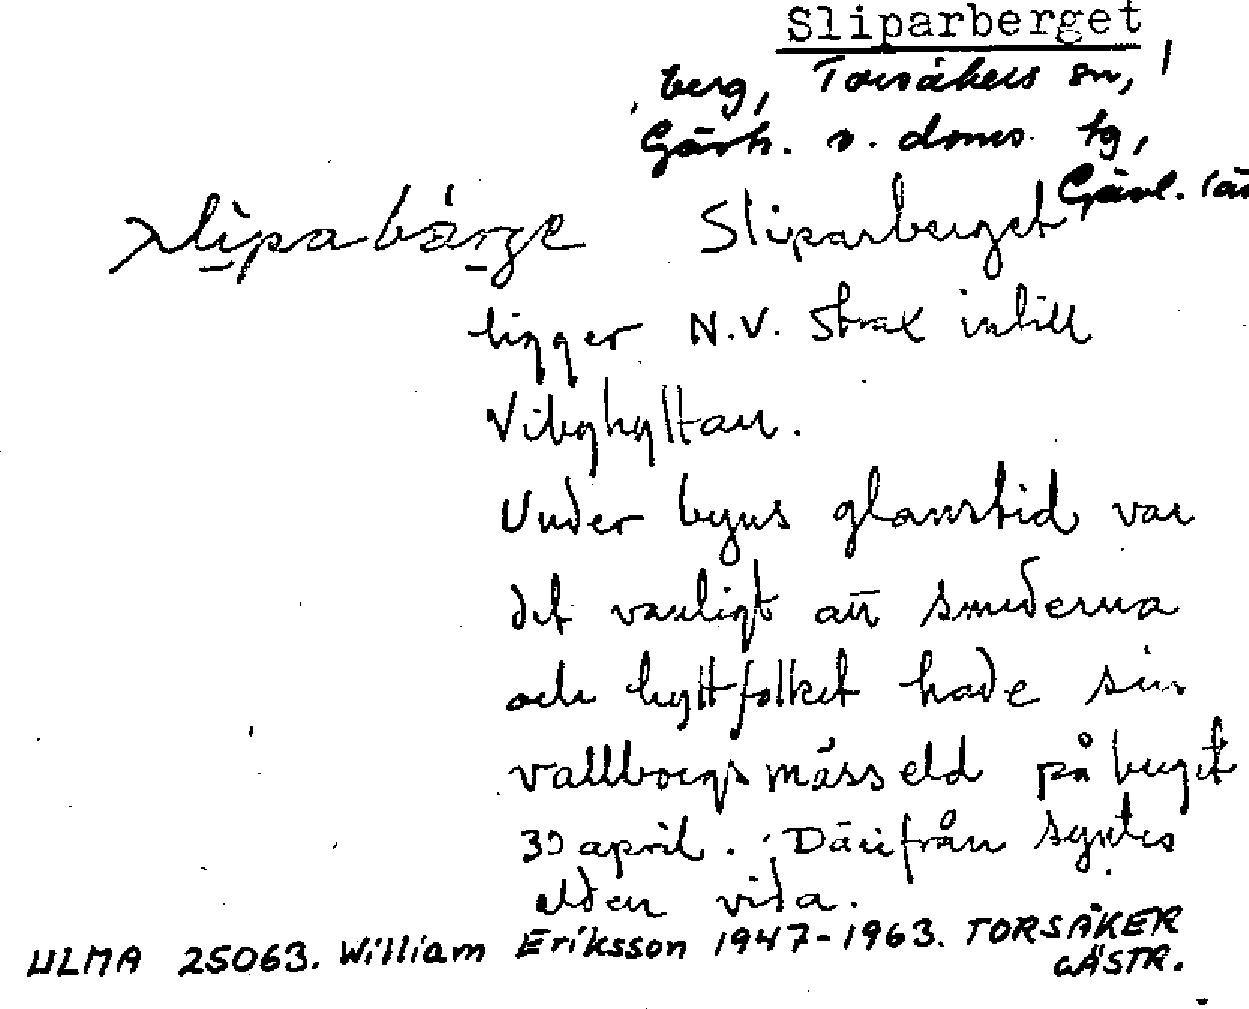 Sliparberget
berg, Torsåkers sn,
Gästr. v. doms. tg,
Gävl. lä
slipabárge Sliparberget
ligger N.V. strax intill
Vibyhyttan.
Under byns glanstid var
det vanligt att smederna
och hyttfolket hade sin
vallborgsmässeld på berget
30 april. Därifrån syntes
elden vida.
ULMA 25063. William Eriksson 1947-1963. TORSÅKER
GÄSTR.